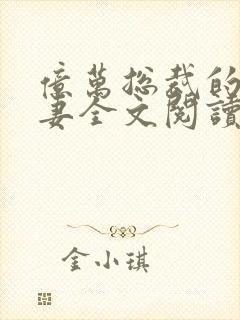 億萬總裁的
妻全文閱讀
金小琪